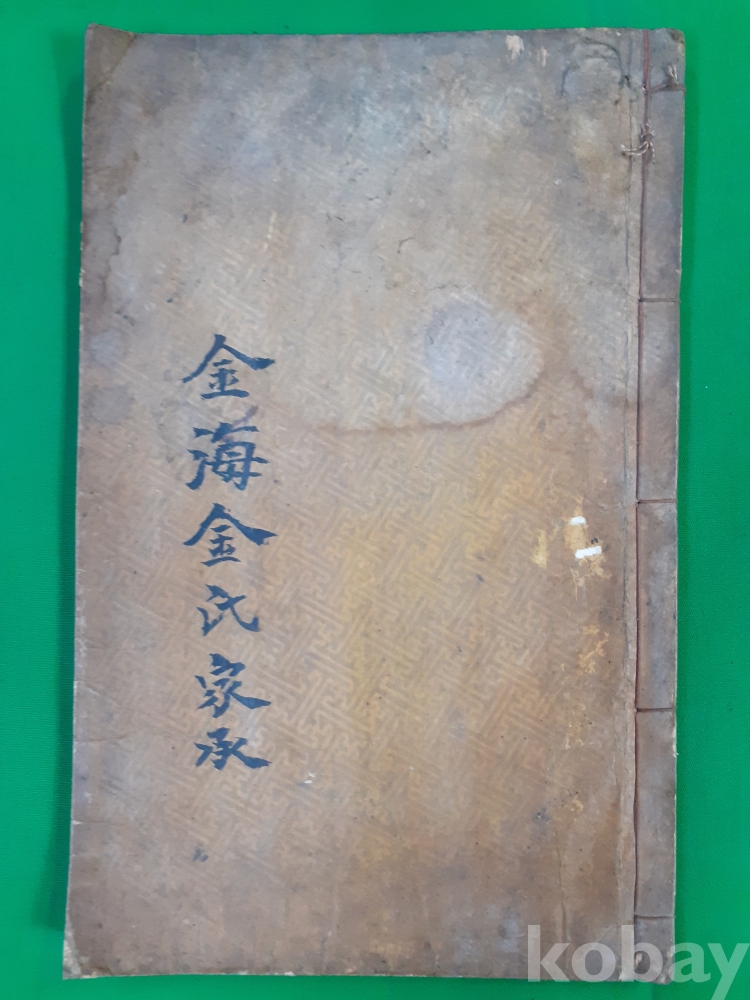 金海金氏家承
kobay